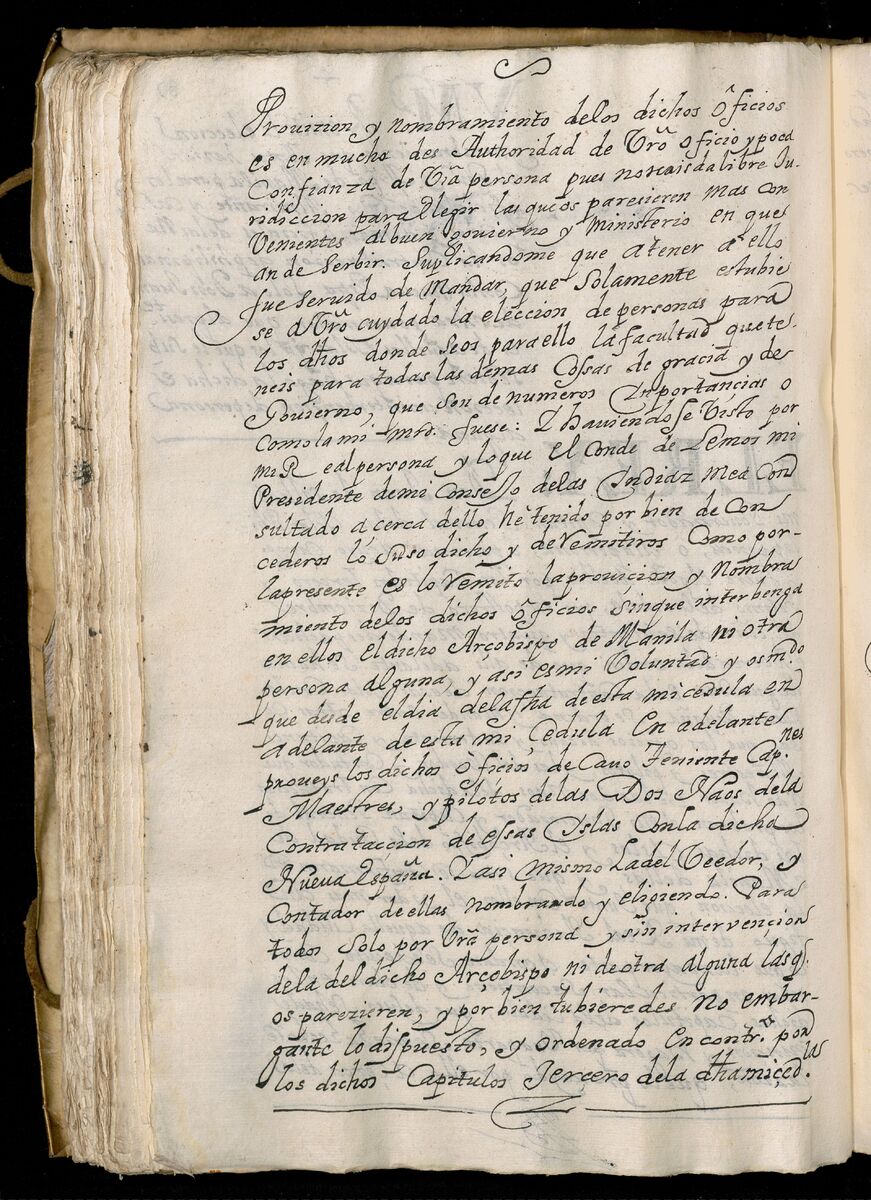 Provition y nombramiento delos dichos Ôficios
es en mucho des Authoridad de Vrâ Oficio y poca
Confianza de Vrâ persona pues no se ôs da libre Ju-
ridiccion para Elegir las que ôs paresieren mas con
Venientes albuen govierno y Ministerio en que
an de Serbir. Suplicandome que atener a ello
fue servido de Mandar, que Solamente estubie
se â Vrô cuydado la eleccion de personas para
los dhos donde Seos para ello la facultad que te-
neis para todas las demas Cossas de gracia y de
Govierno, que son de numeros Inportancias o
Como la mi mrd. fuese: Y haviendose Visto por
mi Real persona y loque El Conde de Lemos mi
Presidente demi Consejo delas Indiaz mea Con
sultado a cerca dello he tenido por bien de Con
cederos lo Suso dicho y de remitiros Como por-
lapresente es lo remito laprovicion y Nombra
miento delos dichos Ôficios sinque interbenga
en ellos El dicho Arçobispo de Manila ni otra
persona alguna, y asi es mi Voluntad y os mdo.
que desde el dia dela fha de esta mi cedula en
adelante de esta mi Cedula En adelante
proveys los dichos ôficios de Cavo Teniente Capnes.
Maestres, y pilótos delas Dos Naos dela
Contrataçcion de essas Yslas Conla dicha
Nueva España. Yasi mismo La del Veedor, y
Contador de ellas nombrando y eligiendo. Para
todos Solo por Vrâ persona y sin intervençion
dela del dicho Arçobispo ni de otra alguna las q̃.
os parezieren, y por bien tubieredes no embar-
gante lo dispuesto, y ordenado En contr.ª por
los dichos Capitulos Tercero dela dha mi çed.las